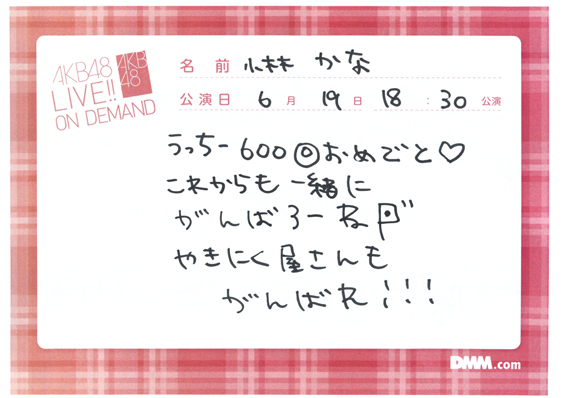 AKB48
LIVE!!
ON DEMAND
AKB
48
名前 小林 かな
公演日 6月 19日 18:30 公演
うっちー600◎おめでと♡
これからも一緒に
がんばろーね
やきにく屋さんも
がんばれ!!!
DMM.com